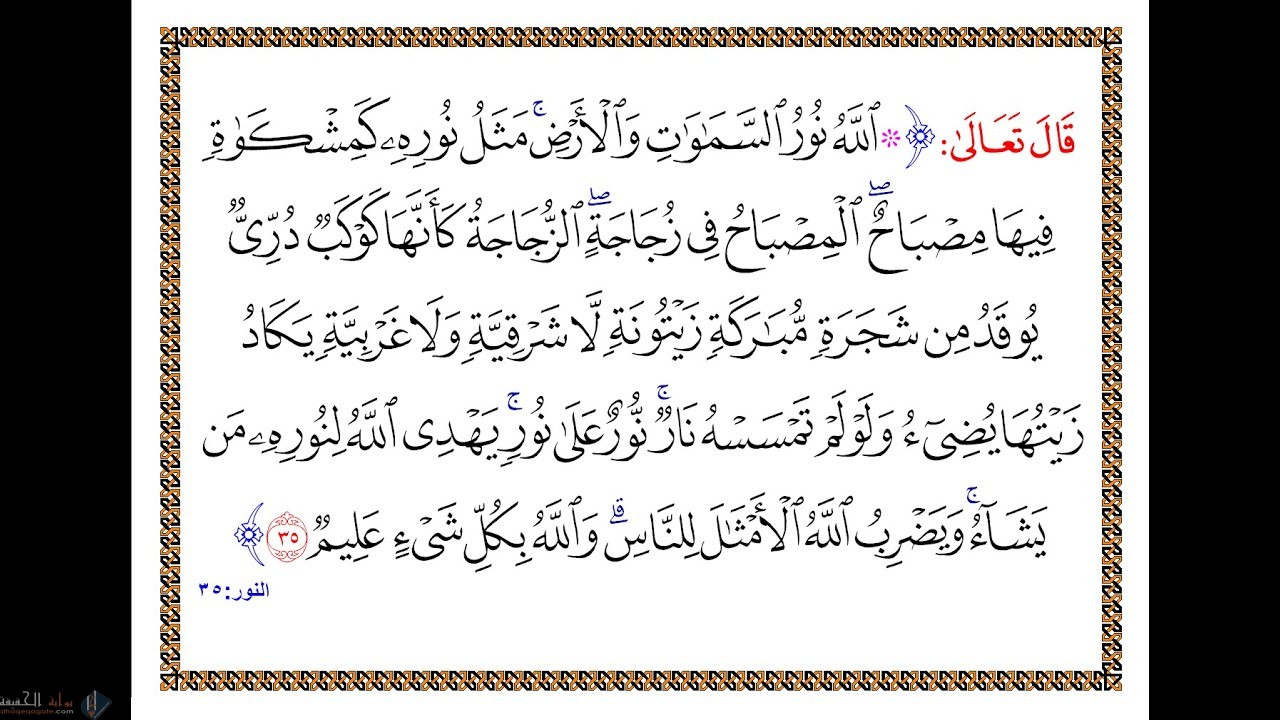 قَالَ تَعَالَىٰ: ﴿۞ ٱللَّهُ نُورُ ٱلسَّمَٰوَٰتِ وَٱلْأَرْضِۚ مَثَلُ نُورِهِۦ كَمِشْكَوٰةٖ
فِيهَا مِصْبَاحٌۖ ٱلْمِصْبَاحُ فِى زُجَاجَةٍۖ ٱلزُّجَاجَةُ كَأَنَّهَا كَوْكَبٞ دُرِّىّٞ
يُوقَدُ مِن شَجَرَةٖ مُّبَٰرَكَةٖ زَيْتُونَةٖ لَّا شَرْقِيَّةٖ وَلَا غَرْبِيَّةٖ يَكَادُ
زَيْتُهَا يُضِىٓءُ وَلَوْ لَمْ تَمْسَسْهُ نَارٞۚ نُّورٌ عَلَىٰ نُورٖۚ يَهْدِى ٱللَّهُ لِنُورِهِۦ مَن
يَشَآءُۚ وَيَضْرِبُ ٱللَّهُ ٱلْأَمْثَٰلَ لِلنَّاسِۗ وَٱللَّهُ بِكُلِّ شَىْءٍ عَلِيمٞ ٣٥﴾
النور: ٣٥
بوابة الحقيقة
alhaqeqagate.com